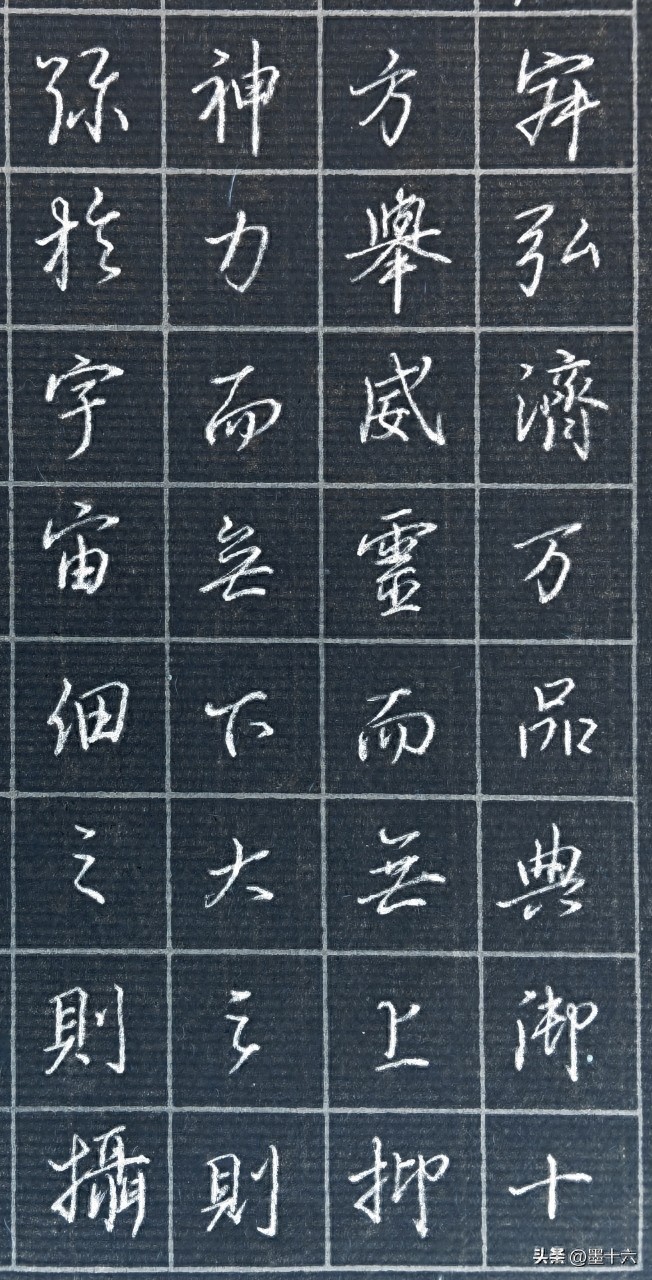 寂弘濟万品典御十
方舉威靈而無上抑
神力而無下大之則
弥於宇宙細之則攝
头条 @墨十六